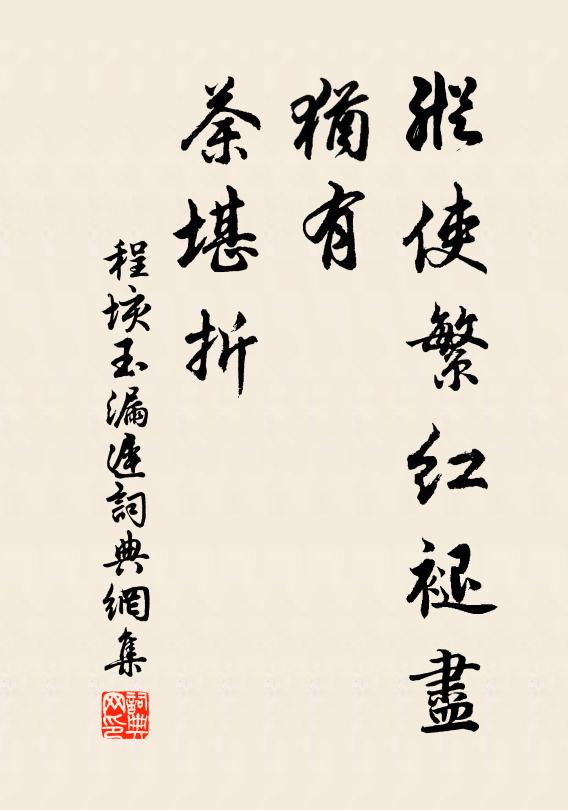 縱使繁紅褪盡
猶有
荼堪折
程垓玉漏遲詞典網集
詞典网印